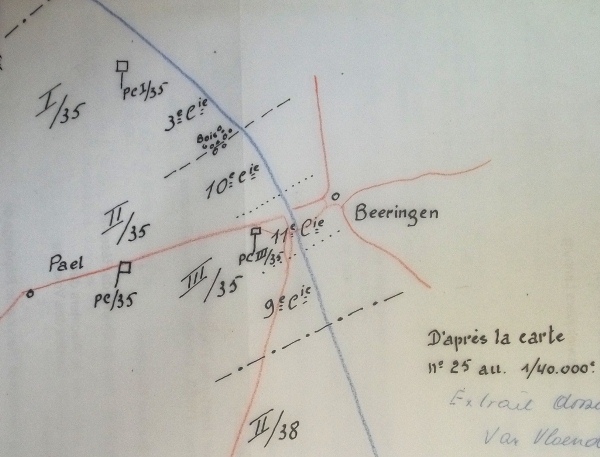 PC I/35
I/35
3e Cie
Bois
10e Cie
II/35
Beeringen
11e Cie
Pael
PC III/35
III/35
PC/35
9e Cie
D'après la carte
n° 25 au 1/40.000e
Extrait
II/38
Van